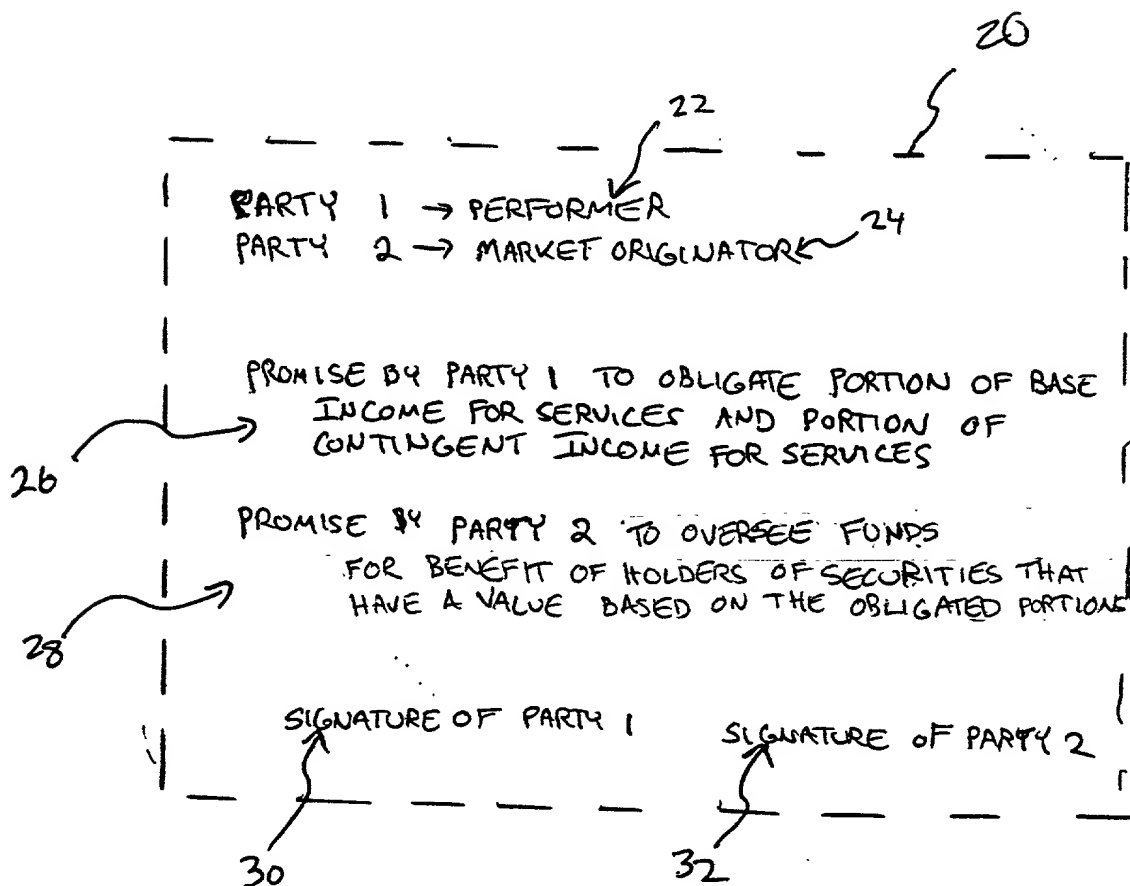 20
22
PARTY 1 → PERFORMER
PARTY 2 → MARKET ORIGINATOR 24
PROMISE BY PARTY 1 TO OBLIGATE PORTION OF BASE
INCOME FOR SERVICES AND PORTION OF
CONTINGENT INCOME FOR SERVICES
26
PROMISE BY PARTY 2 TO OVERSEE FUNDS
FOR BENEFIT OF HOLDERS OF SECURITIES THAT
HAVE A VALUE BASED ON THE OBLIGATED PORTIONS
28
SIGNATURE OF PARTY 1 SIGNATURE OF PARTY 2
30 32